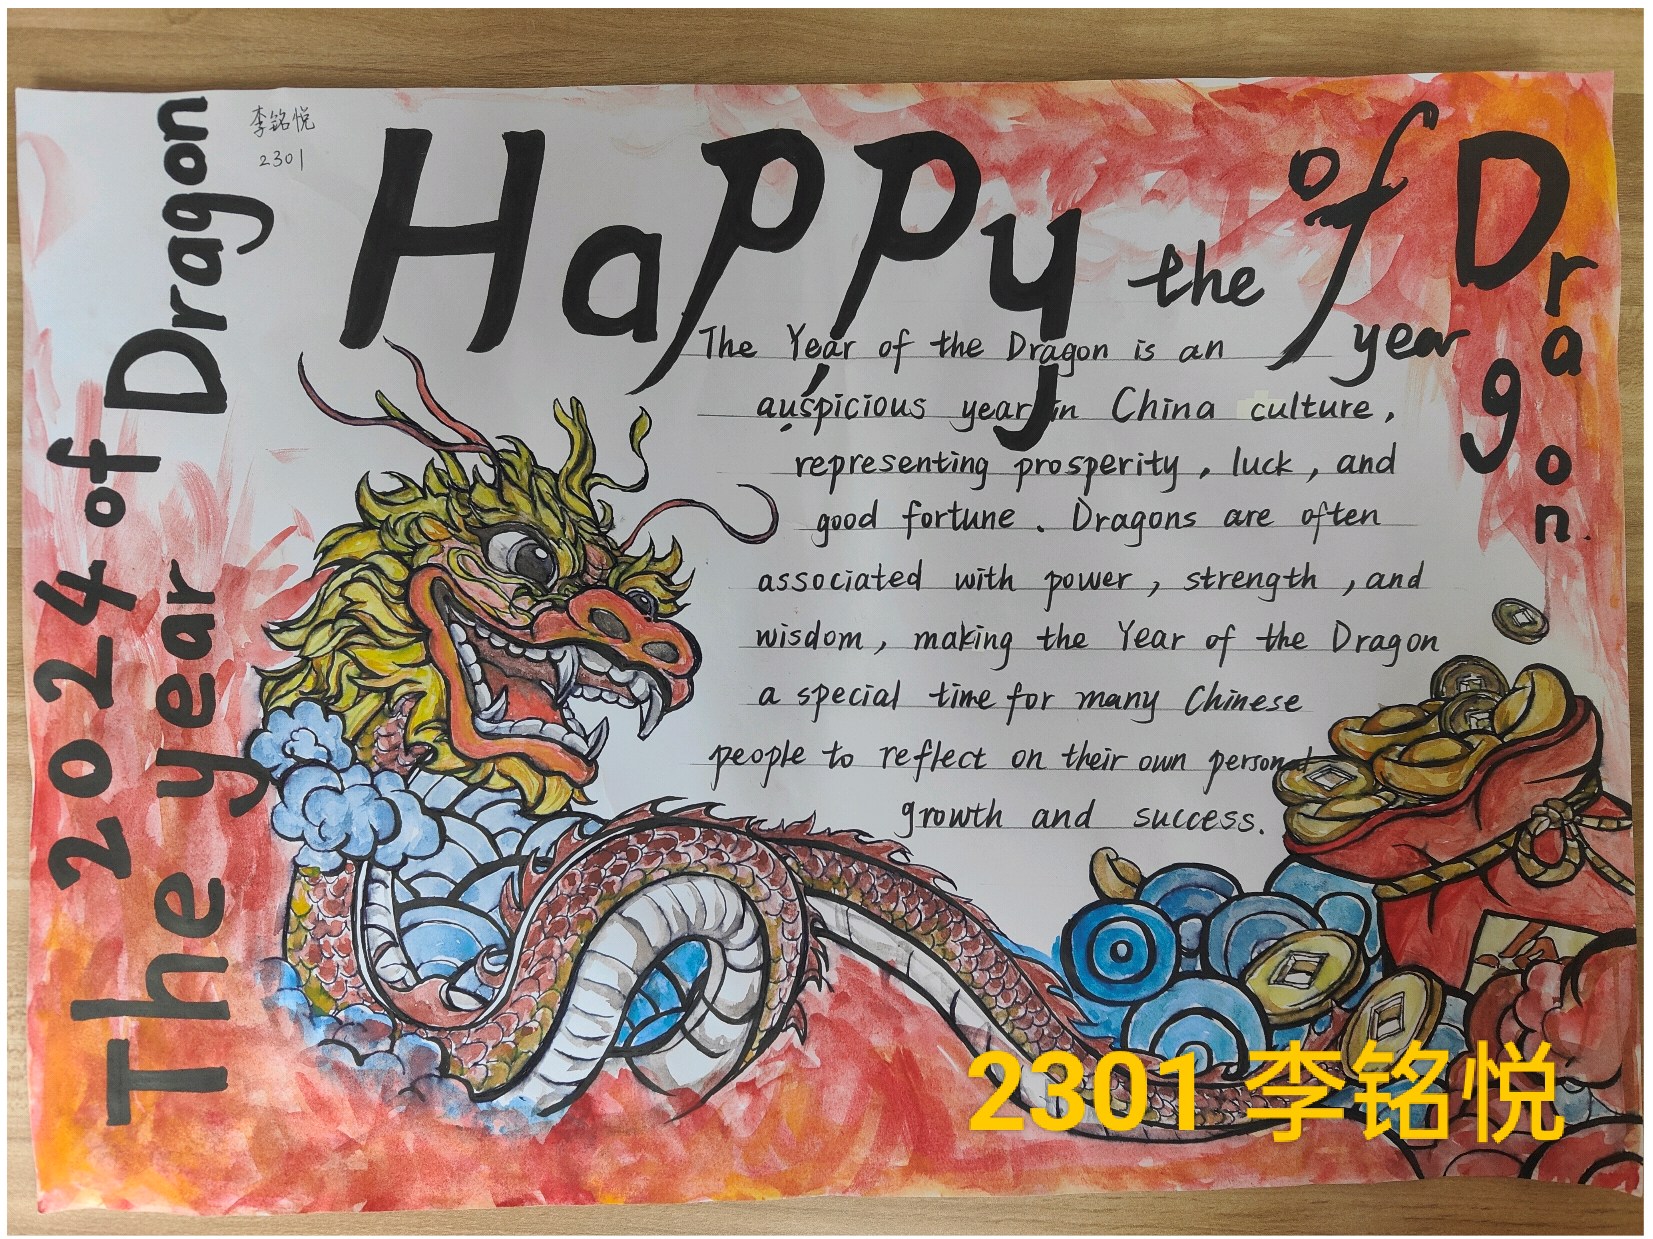 李铭悦
2301
Happy the year of Dragon.
2024 of Dragon
The year
The Year of the Dragon is an
auspicious year in China culture,
representing prosperity, luck, and
good fortune. Dragons are often
associated with power, strength, and
wisdom, making the Year of the Dragon
a special time for many Chinese
people to reflect on their own personal
growth and success.
2301 李铭悦